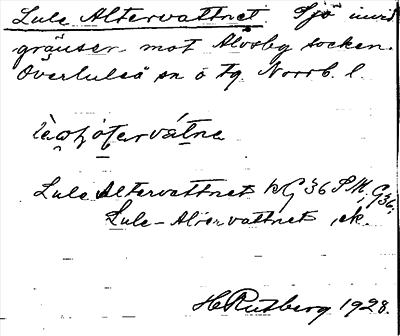 Lule Altervattnet Sjö invid
gränsen mot Älvsby socken.
Överluleå sn o tg. Norrb. l.
Lule Altervattnet kG 36 SM, G36,
Lule-Altervattnet, ek.
H Rutberg 1928.